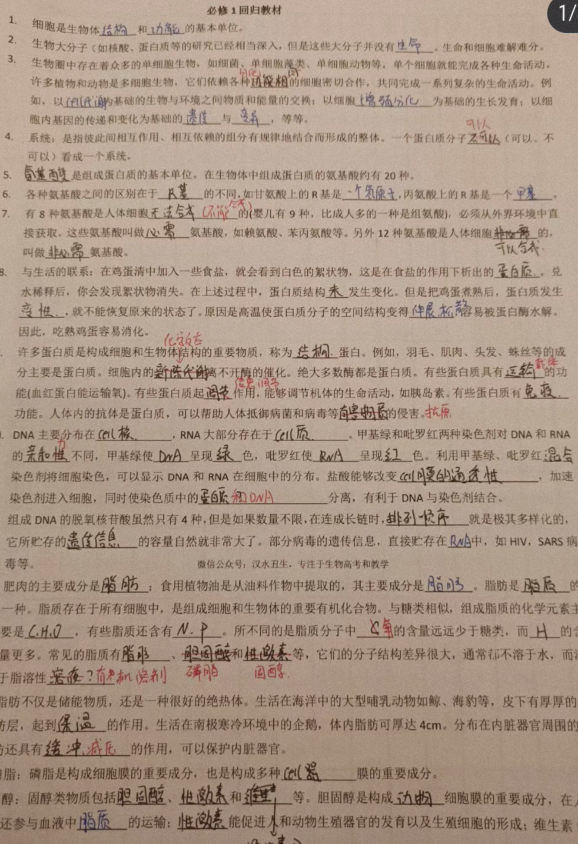 必修1回归教材
1/
1. 细胞是生物体结构和功能的基本单位。
2. 生物大分子（如核酸、蛋白质等的研究已经相当深入，但是这些大分子并没有生命。生命和细胞难解难分。
3. 生物圈中存在着众多的单细胞生物，如细菌、单细胞藻类、单细胞动物等，单个细胞就能完成各种生命活动。
许多植物和动物是多细胞生物，它们依赖各种的细胞密切合作，共同完成一系列复杂的生命活动。例
如，以cell代谢为基础的生物与环境之间物质和能量的交换；以细胞增殖分化为基础的生长发育；以细
胞内基因的传递和变化为基础的遗传与变异，等等。
可以
4. 系统：是指彼此间相互作用、相互依赖的组分有规律地结合而形成的整体。一个蛋白质分子（可以、不
可以）看成一个系统。
5. 氨基酸是组成蛋白质的基本单位。在生物体中组成蛋白质的氨基酸约有20种。
6. 各种氨基酸之间的区别在于R基的不同，如甘氨酸上的R基是一个氢原子，丙氨酸上的R基是一个甲基。
7. 有8种氨基酸是人体细胞不能合成的（婴儿有9种，比成人多的一种是组氨酸），必须从外界环境中直
接获取。这些氨基酸叫做必需氨基酸，如赖氨酸、苯丙氨酸等。另外12种氨基酸是人体细胞可以合成的，
叫做非必需氨基酸。
8. 与生活的联系：在鸡蛋清中加入一些食盐，就会看到白色的絮状物，这是在食盐的作用下析出的蛋白质。兑
水稀释后，你会发现絮状物消失。在上述过程中，蛋白质结构未发生变化。但是把鸡蛋煮熟后，蛋白质发生
变性，就不能恢复原来的状态了。原因是高温使蛋白质分子的空间结构变得伸展松散容易被蛋白酶水解。
因此，吃熟鸡蛋容易消化。
许多蛋白质是构成细胞和生物体结构的重要物质，称为结构蛋白。例如，羽毛、肌肉、头发、蛛丝等的成
分主要是蛋白质。细胞内的离不开酶的催化。绝大多数酶都是蛋白质。有些蛋白质具有运输的功
能（血红蛋白能运输氧）。有些蛋白质起调节作用，能够调节机体的生命活动，如胰岛素。有些蛋白质有免疫
功能。人体内的抗体是蛋白质，可以帮助人体抵御病菌和病毒等的侵害。抗原
DNA主要分布在cell核，RNA大部分存在于cell质。甲基绿和吡罗红两种染色剂对DNA和RNA
的亲和性不同，甲基绿使DNA呈现绿色，吡罗红使RNA呈现红色。利用甲基绿、吡罗红混合
染色剂将细胞染色，可以显示DNA和RNA在细胞中的分布。盐酸能够改变cell膜的通透性，加速
染色剂进入细胞，同时使染色质中的蛋白质和DNA分离，有利于DNA与染色剂结合。
组成DNA的脱氧核苷酸虽然只有4种，但是如果数量不限，在连成长链时，排列顺序就是极其多样化的，
它所贮存的遗传信息的容量自然就非常大了。部分病毒的遗传信息，直接贮存在RNA中，如HIV、SARS病
毒等。
微信公众号：汉水丑生，专注于生物高考和教学
肥肉的主要成分是脂肪；食用植物油是从油料作物中提取的，其主要成分是脂肪。脂肪是脂质的
一种。脂质存在于所有细胞中，是组成细胞和生物体的重要有机化合物。与糖类相似，组成脂质的化学元素主
要是C.H.O，有些脂质还含有N.P。所不同的是脂质分子中氧的含量远远少于糖类，而H的含
量更多。常见的脂质有脂肪、磷脂和固醇等，它们的分子结构差异很大，通常都不溶于水，而
于脂溶性有机溶剂
脂肪不仅是储能物质，还是一种很好的绝热体。生活在海洋中的大型哺乳动物如鲸、海豹等，皮下有厚厚的
肪层，起到保温的作用。生活在南极寒冷环境中的企鹅，体内脂肪可厚达4cm。分布在内脏器官周围的
还具有缓冲减压的作用，可以保护内脏器官。
脂：磷脂是构成细胞膜的重要成分，也是构成多种cell器膜的重要成分。
醇：固醇类物质包括胆固醇、性激素和等。胆固醇是构成动物细胞膜的重要成分，在
还参与血液中脂质的运输；性激素能促进人和动物生殖器官的发育以及生殖细胞的形成；维生素